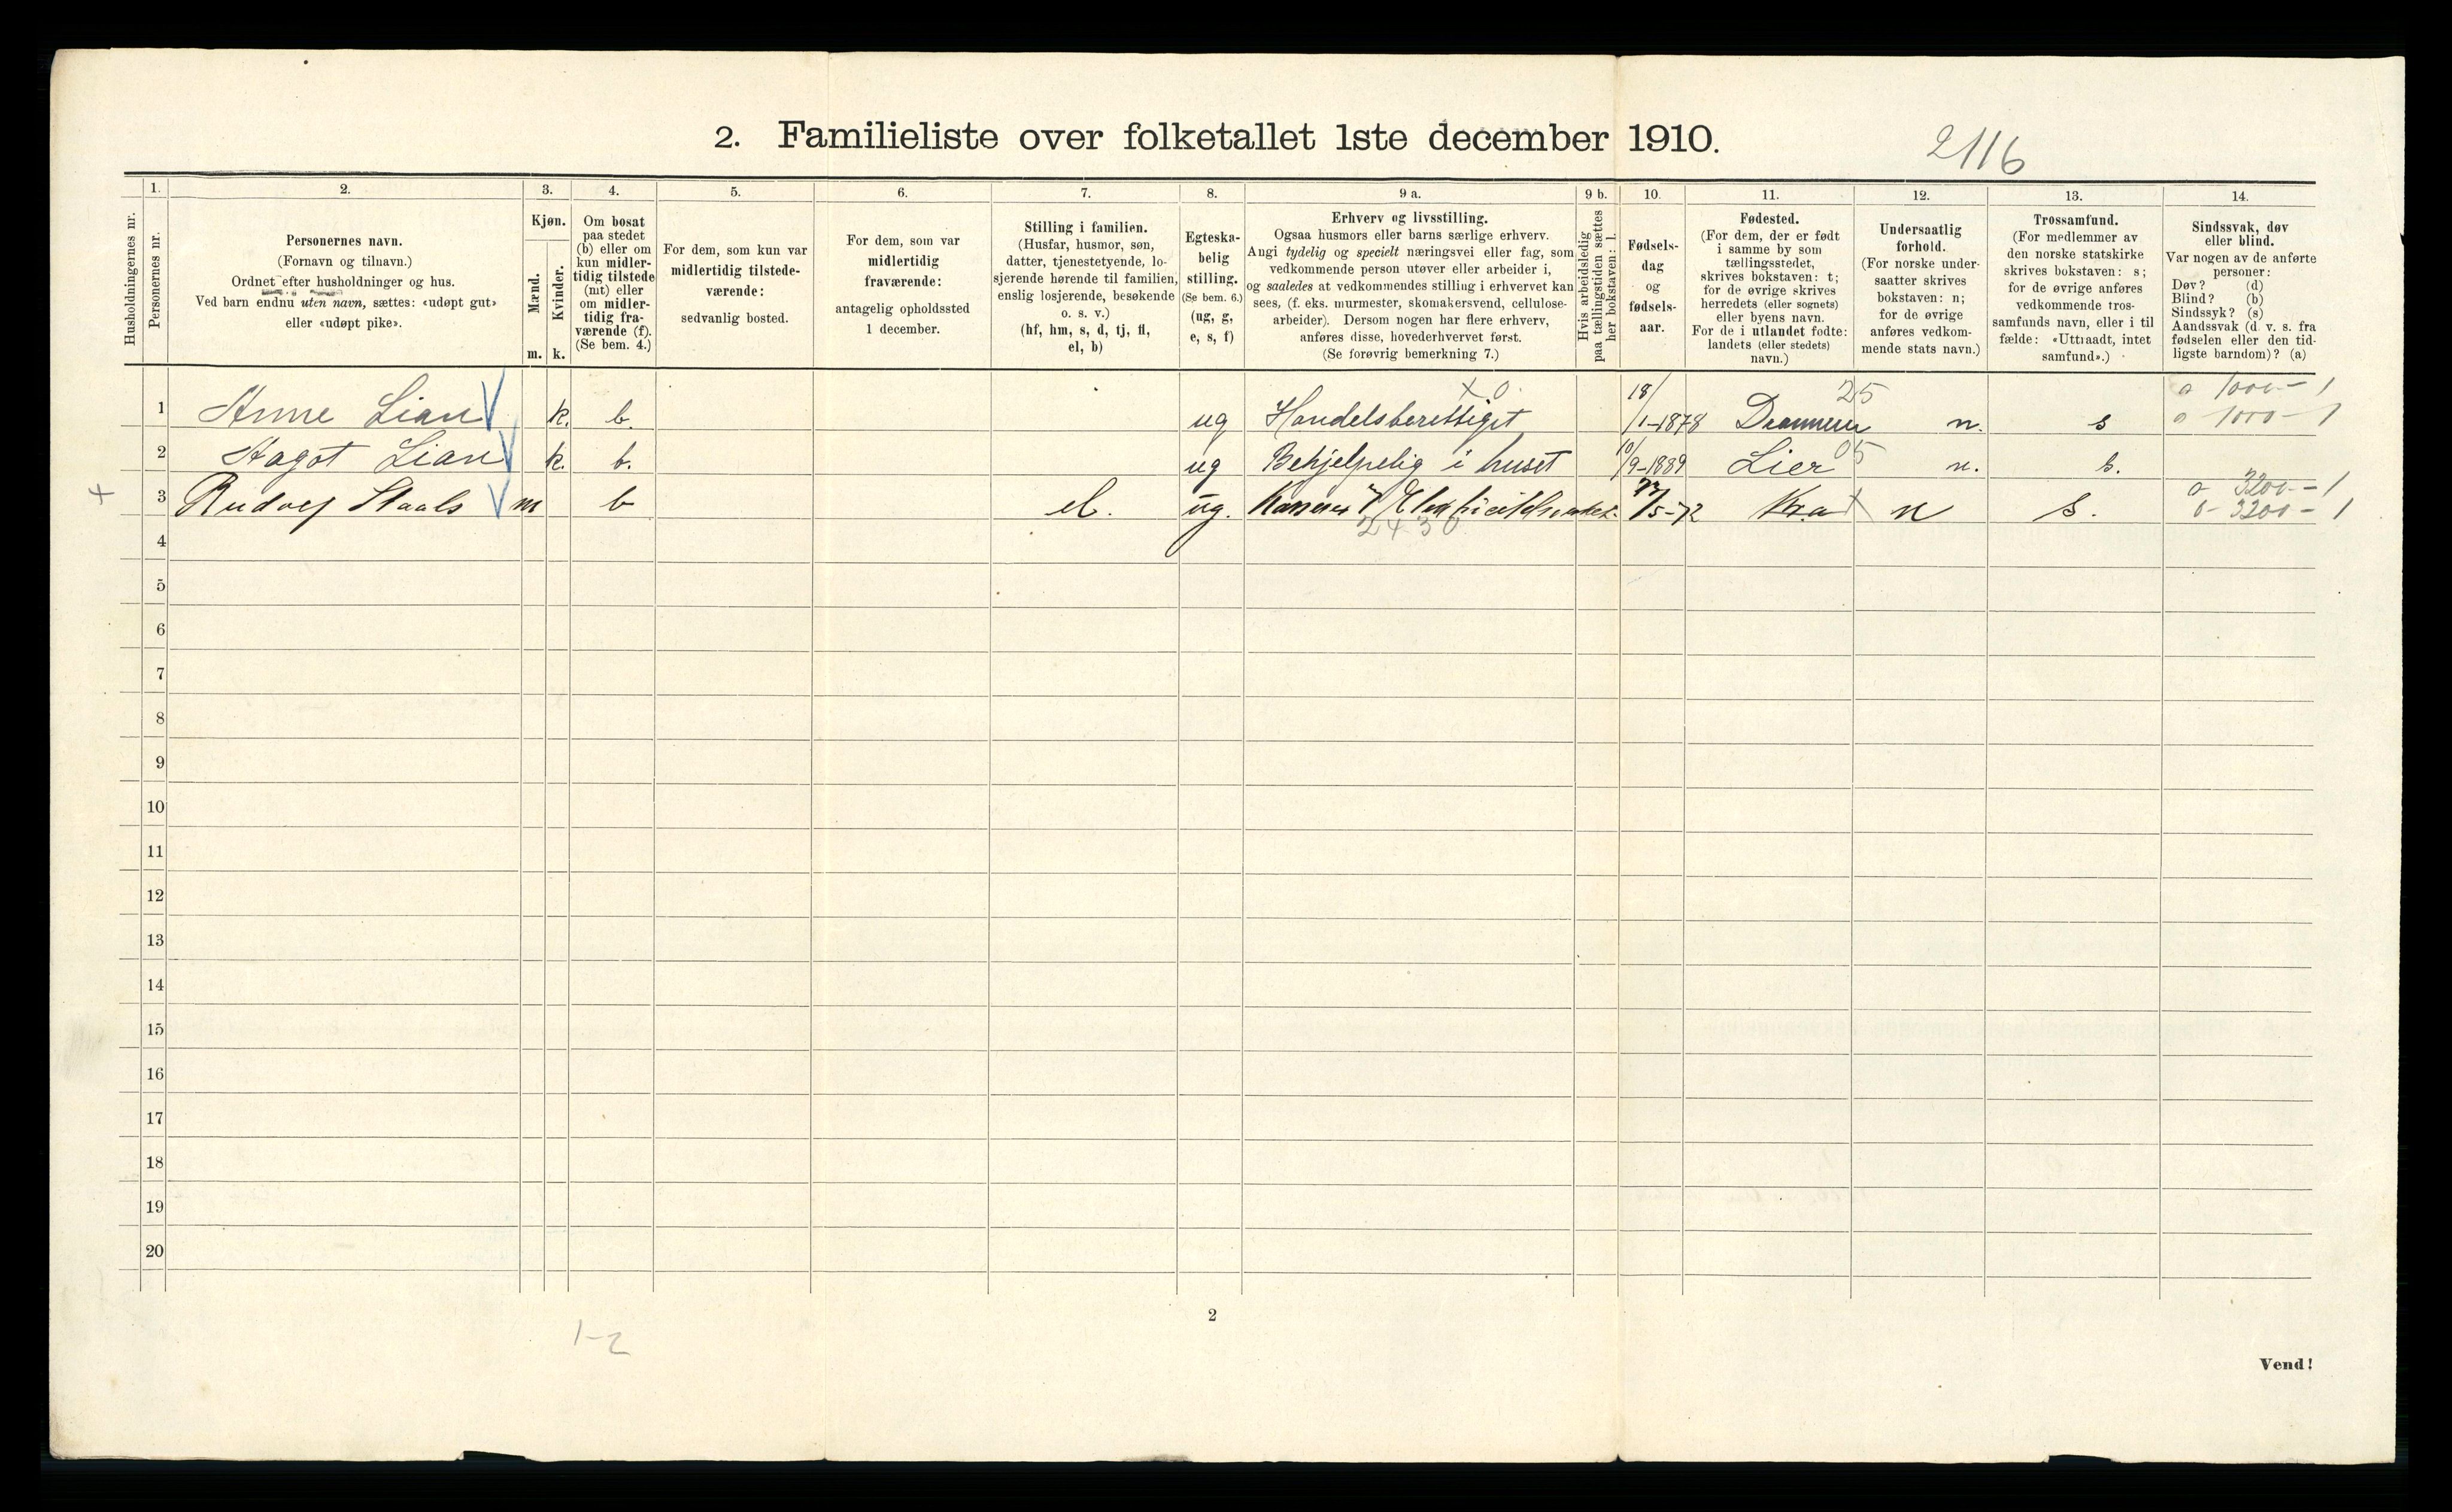 2. Familieliste over folketallet 1ste december 1910.
2116
Husholdningernes nr.
1.
Personernes nr.
2.
Personernes navn.
(Fornavn og tilnavn.)
Ordnet efter husholdninger og hus.
Ved barn endnu uten navn, sættes: «udøpt gut»
eller «udøpt pike».
3.
Kjøn.
Mænd.
Kvinder.
m. k.
4.
Om bosat
paa stedet
(b) eller om
kun midler-
tidig tilstede
(mt) eller
om midler-
tidig fra-
værende (f).
(Se bem. 4.)
5.
For dem, som kun var
midlertidig tilstede-
værende:
sedvanlig bosted.
6.
For dem, som var
midlertidig
fraværende:
antagelig opholdssted
1 december.
7.
Stilling i familien.
(Husfar, husmor, søn,
datter, tjenestetyende, lo-
sjerende hørende til familien,
enslig losjerende, besøkende
o. s. v.)
(hf, hm, s, d, tj, fl,
el, b)
8.
Egteska-
belig
stilling.
(Se bem. 6.)
(ug, g,
e, s, f)
9 a.
Erhverv og livsstilling.
Ogsaa husmors eller barns særlige erhverv.
Angi tydelig og specielt næringsvei eller fag, som
vedkommende person utøver eller arbeider i,
og saaledes at vedkommendes stilling i erhvervet kan
sees, (f. eks. murmester, skomakersvend, cellulose-
arbeider). Dersom nogen har flere erhverv,
anføres disse, hovederhvervet først.
(Se forøvrig bemerkning 7.)
9 b.
Hvis arbeidsledig
paa tællingstiden sættes
her bokstaven: l.
10.
Fødsels-
dag
og
fødsels-
aar.
11.
Fødested.
(For dem, der er født
i samme by som
tællingsstedet,
skrives bokstaven: t;
for de øvrige skrives
herredets (eller sognets)
eller byens navn.
For de i utlandet fødte:
landets (eller stedets)
navn.)
12.
Undersaatlig
forhold.
(For norske under-
saatter skrives
bokstaven: n;
for de øvrige
anføres vedkom-
mende stats navn.)
13.
Trossamfund.
(For medlemmer av
den norske statskirke
skrives bokstaven: s;
for de øvrige anføres
vedkommende tros-
samfunds navn, eller i til
fælde: «Uttraadt, intet
samfund».)
14.
Sindssvak, døv
eller blind.
Var nogen av de anførte
personer:
Døv? (d)
Blind? (b)
Sindssyk? (s)
Aandssvak (d. v. s. fra
fødselen eller den tid-
ligste barndom)? (a)
x 0. 25 0 1000 - 1
1 Anne Lian V k. b. ug Handelsberettiget 18/1-1878 Drammen n. s 0 1000 - 1
2 Aagot Lian V k. b. ug Behjelpelig i huset 10/9-1889 Lier 05 n. s.
0 3200 - 1
+ 3 Rudolf Staals V m b el. ug. /5-72 Kra n s. 0 - 3200 - 1
2430
4
5
6
7
8
9
10
11
12
13
14
15
16
17
18
19
20
2
1-2
Vend!